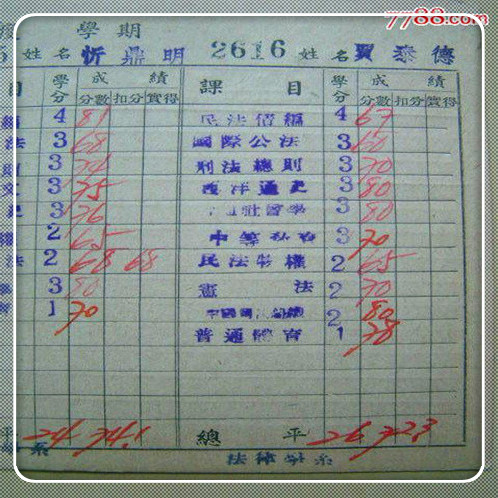 7788.com
學期
姓名 忻鼎明 2616 姓名 賈泰德
目 學分 成績 課目 學分 成績
分數 扣分 實得 分數 扣分 實得
編 4 81 民法債編 4 67
法 3 68 國際公法 3 60
則 3 74 刑法總則 3 70
3 75 西洋通史 3 80
史 3 76 社會學 3 80
2 65 中等私 3 70
法 2 68 68 民法物權 2 65
3 80 憲法 2 70
育 1 70 中國 2 80
普通體育 1 70
24 74.1 總平 26 72.3
系 法律學系